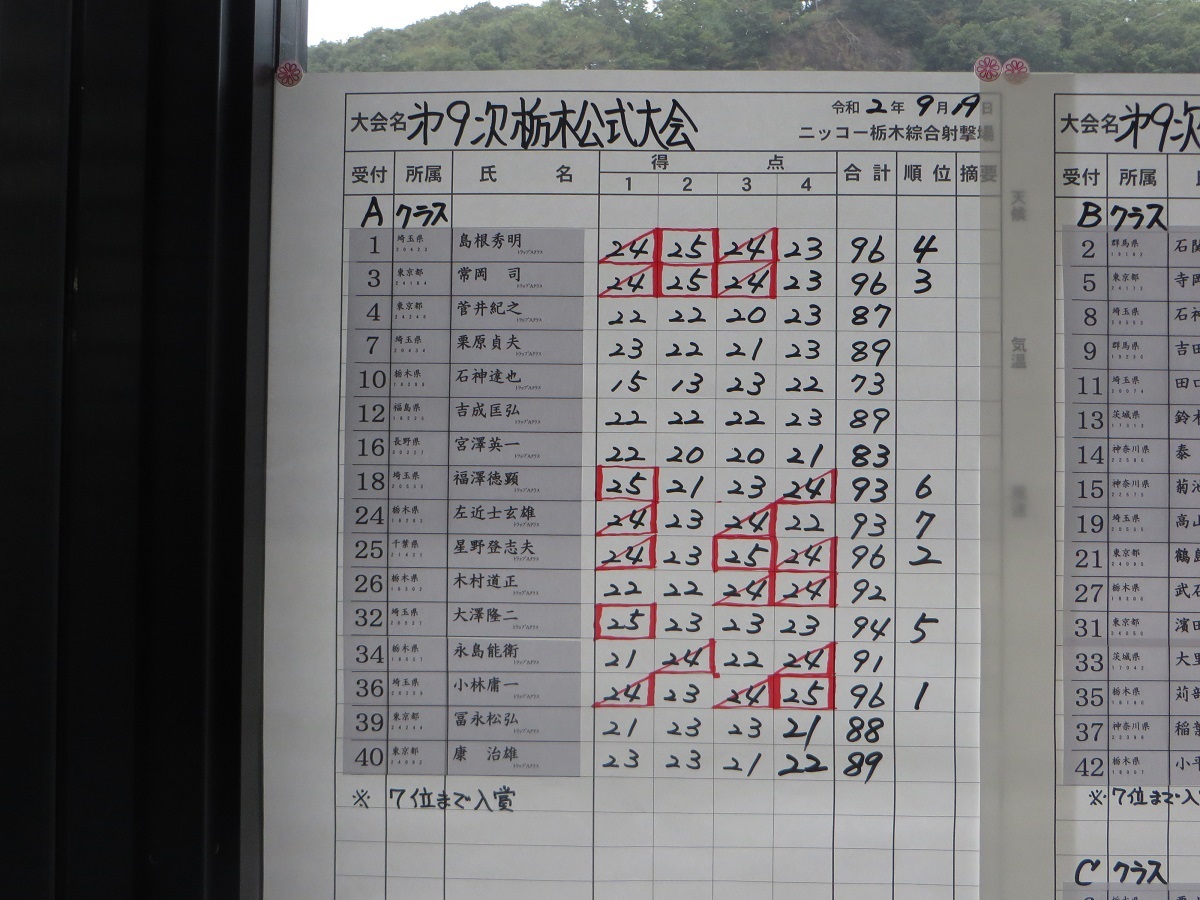 大会名 第9次栃木公式大会 令和 2 年 9 月 19 日
ニッコー栃木綜合射撃場
受付 所属 氏 名 得 点 合計 順位 摘要
1 2 3 4
A クラス
1 埼玉県 島根秀明 24 25 24 23 96 4
3 東京都 常岡 司 24 25 24 23 96 3
4 東京都 菅井紀之 22 22 20 23 87
7 埼玉県 栗原貞夫 23 22 21 23 89
10 栃木県 石神達也 15 13 23 22 73
12 福島県 吉成匡弘 22 22 22 23 89
16 長野県 宮澤英一 22 20 20 21 83
18 埼玉県 福澤徳顕 25 21 23 24 93 6
24 栃木県 左近士玄雄 24 23 24 22 93 7
25 千葉県 星野登志夫 24 23 25 24 96 2
26 栃木県 木村道正 22 22 24 24 92
32 埼玉県 大澤隆二 25 23 23 23 94 5
34 栃木県 永島能衛 21 24 22 24 91
36 埼玉県 小林庸一 24 23 24 25 96 1
39 東京都 冨永松弘 21 23 23 21 88
40 東京都 康 治雄 23 23 21 22 89
※ 7位まで入賞
天候
気温
大会名 第9次
受付 所属
B クラス
2 群馬県 石
5 東京都 寺岡
8 埼玉県 石神
9 群馬県 吉田
11 埼玉県 田口
13 茨城県 鈴木
14 神奈川県 泰
15 神奈川県 菊池
19 埼玉県 高山
21 東京都 鶴島
27 栃木県 武石
31 東京都 濱田
33 茨城県 大里
35 栃木県 苅部
37 神奈川県 稲葉
42 栃木県 小平
※ 7位まで入賞
C クラス